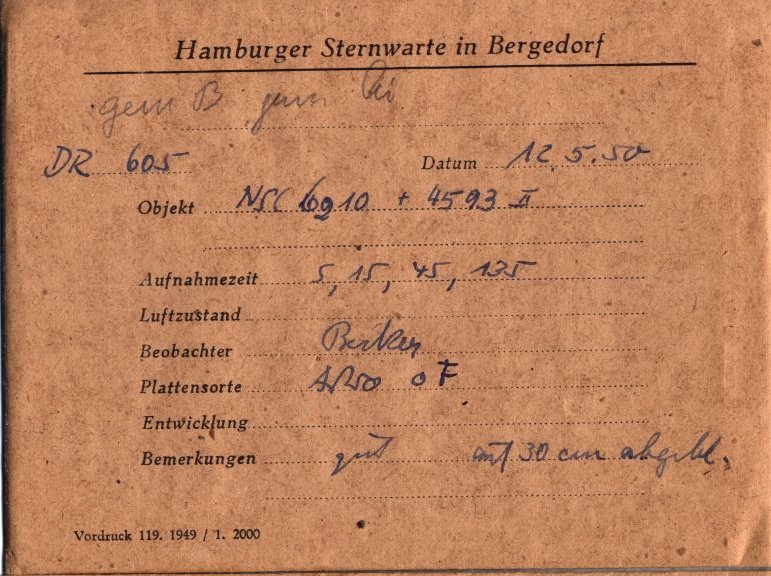 Hamburger Sternwarte in Bergedorf
gem B
DR 605 Datum 12.5.50
Objekt NGC 6910 + 4593 II
Aufnahmezeit 5, 15, 45, 135
Luftzustand
Beobachter
Plattensorte
Entwicklung
Bemerkungen gut auf 30 cm abgebl.
Vordruck 119. 1949 / 1. 2000